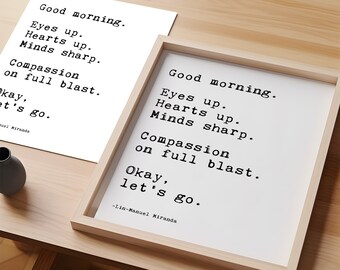 Good morning.
Eyes up.
Hearts up.
Minds sharp.
Compassion
on full blast.
Okay,
let's go.
-Lin-Manuel Miranda
Good morning.
Eyes up.
Hearts up.
Minds sharp.
Compassion
on full blast.
Okay,
let's go.
-Lin-Manuel Miranda